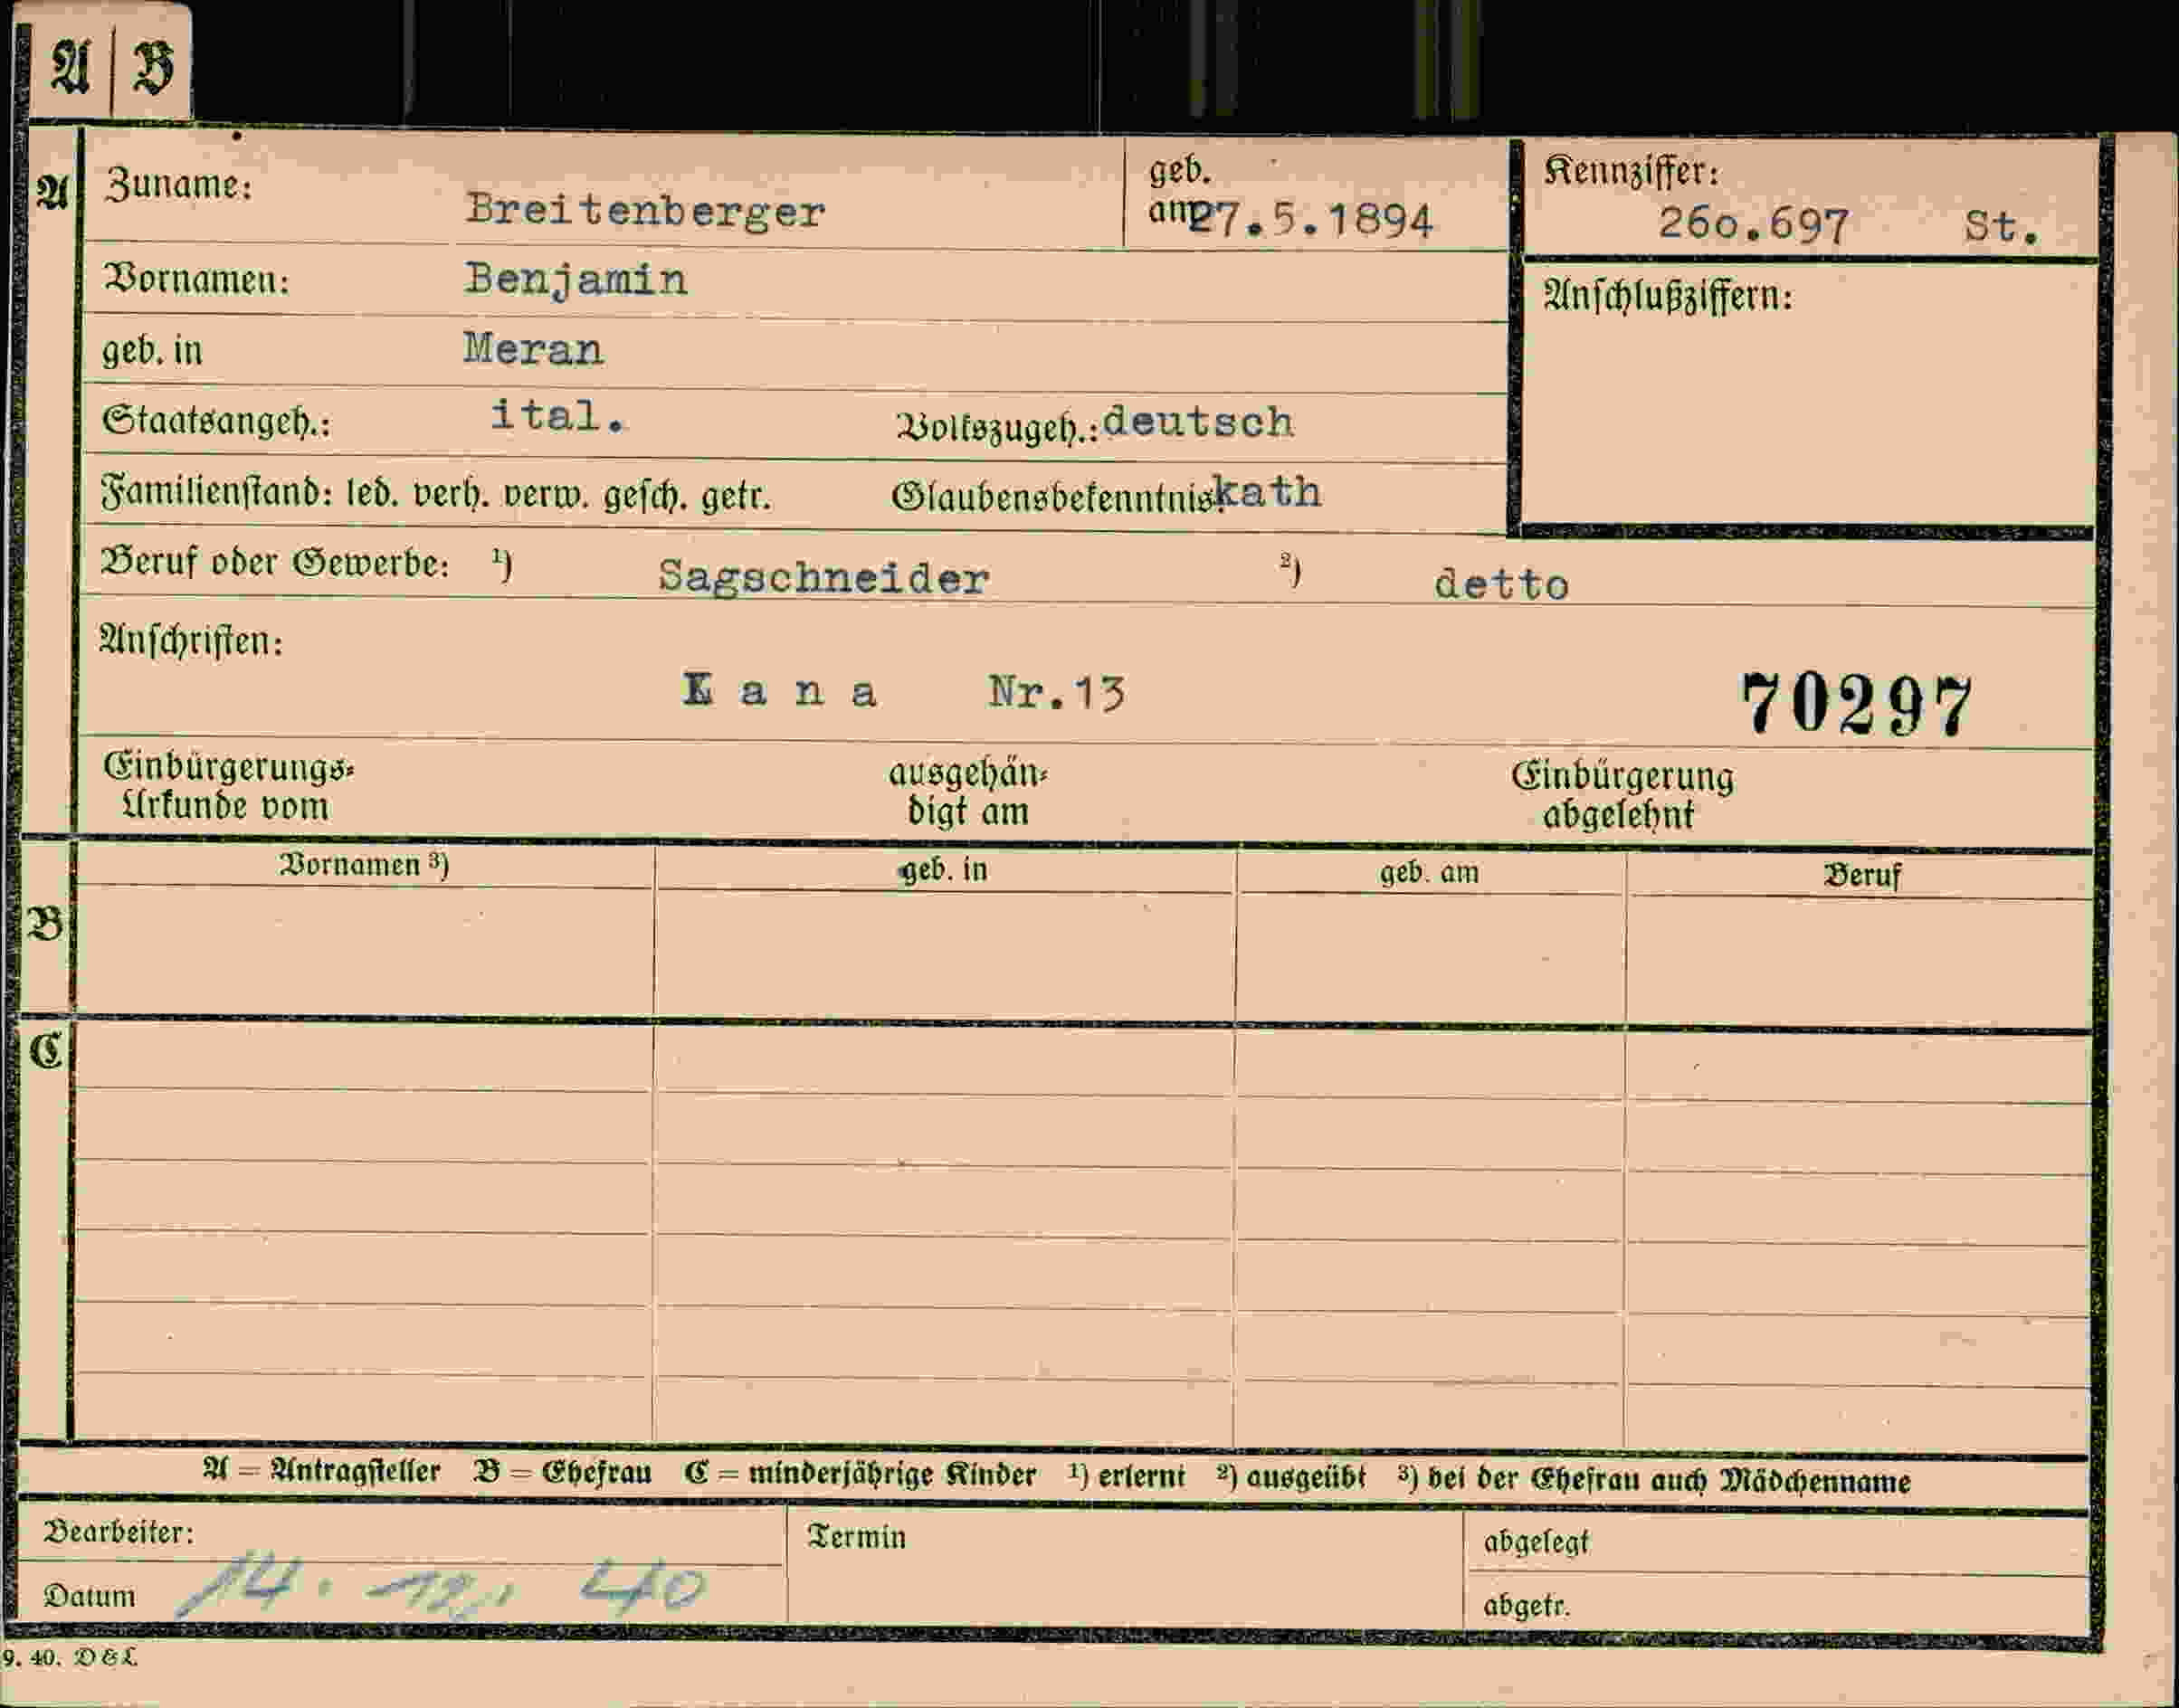 A | B
A
Zuname: Breitenberger geb. am 27.5.1894
Kennziffer: 26o.697 St.
Vornamen: Benjamin
Anschlußziffern:
geb. in Meran
Staatsangeh.: ital. Volkszugeh.: deutsch
Familienstand: led. verh. verw. gesch. getr. Glaubensbekenntnis: kath
Beruf oder Gewerbe: ¹) Sagschneider ²) detto
Anschriften:
Nr.13 70297
Einbürgerungs= ausgehän= Einbürgerung
Urkunde vom digt am abgelehnt
Vornamen ³) geb. in geb. am Beruf
B
C
A = Antragsteller B = Ehefrau C = minderjährige Kinder ¹) erlernt ²) ausgeübt ³) bei der Ehefrau auch Mädchenname
Bearbeiter: Termin abgelegt
Datum 14. 12. 40 abgetr.
9. 40. D & L